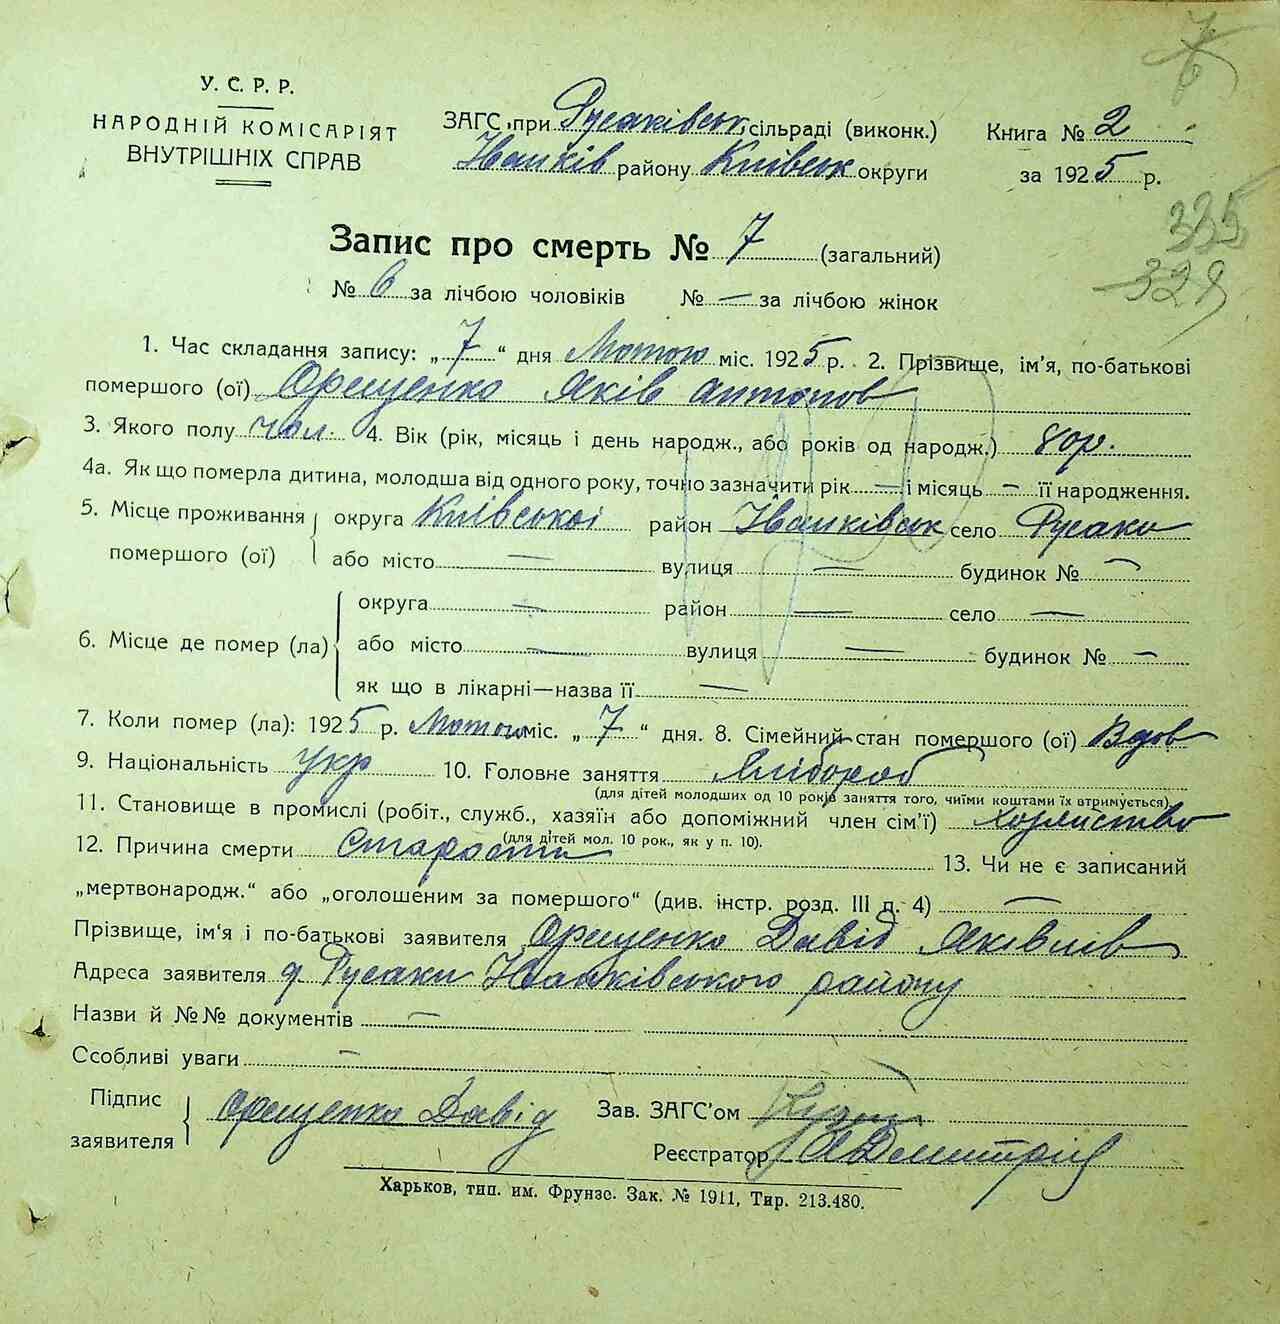 У. С. Р. Р.
НАРОДНІЙ КОМІСАРІЯТ
ВНУТРІШНІХ СПРАВ
ЗАГС при Русаківськ. сільраді (виконк.)
Іванків району Київськ округи
Книга № 2
за 1925 р.
335
329
Запис про смерть № 7 (загальний)
№ 6 за лічбою чоловіків № — за лічбою жінок
1. Час складання запису: „7“ дня Лютого міс. 1925 р. 2. Прізвище, ім'я, по-батькові
помершого (ої) Орещенко Яків Антонов
3. Якого полу чол. 4. Вік (рік, місяць і день народж., або років од народж.) 80р.
4а. Як що померла дитина, молодша від одного року, точно зазначити рік — і місяць — її народження.
5. Місце проживання помершого (ої) округа Київської район Іванківськ село Русаки
або місто — вулиця — будинок № —
6. Місце де помер (ла) округа — район — село —
або місто — вулиця — будинок № —
як що в лікарні—назва її —
7. Коли помер (ла): 1925 р. Лютого міс. „7“ дня. 8. Сімейний стан помершого (ої) Вдов
9. Національність Укр 10. Головне заняття Хлібороб
(для дітей молодших од 10 років заняття того, чиїми коштами їх втримується)
11. Становище в промислі (робіт., служб., хазяїн або допоміжний член сім'ї) Хозяйство
(для дітей мол. 10 рок., як у п. 10).
12. Причина смерти Старости 13. Чи не є записаний
„мертвонародж.“ або „оголошеним за помершого“ (див. інстр. розд. III п. 4) —
Прізвище, ім'я і по-батькові заявителя Орещенко Давід Яківлів
Адреса заявителя д Русаки Іванківського району
Назви й №№ документів —
Ссобливі уваги —
Підпис заявителя Орещенко Давід
Зав. ЗАГС'ом
Реєстратор
Харьков, тип. им. Фрунзе. Зак. № 1911, Тир. 213.480.